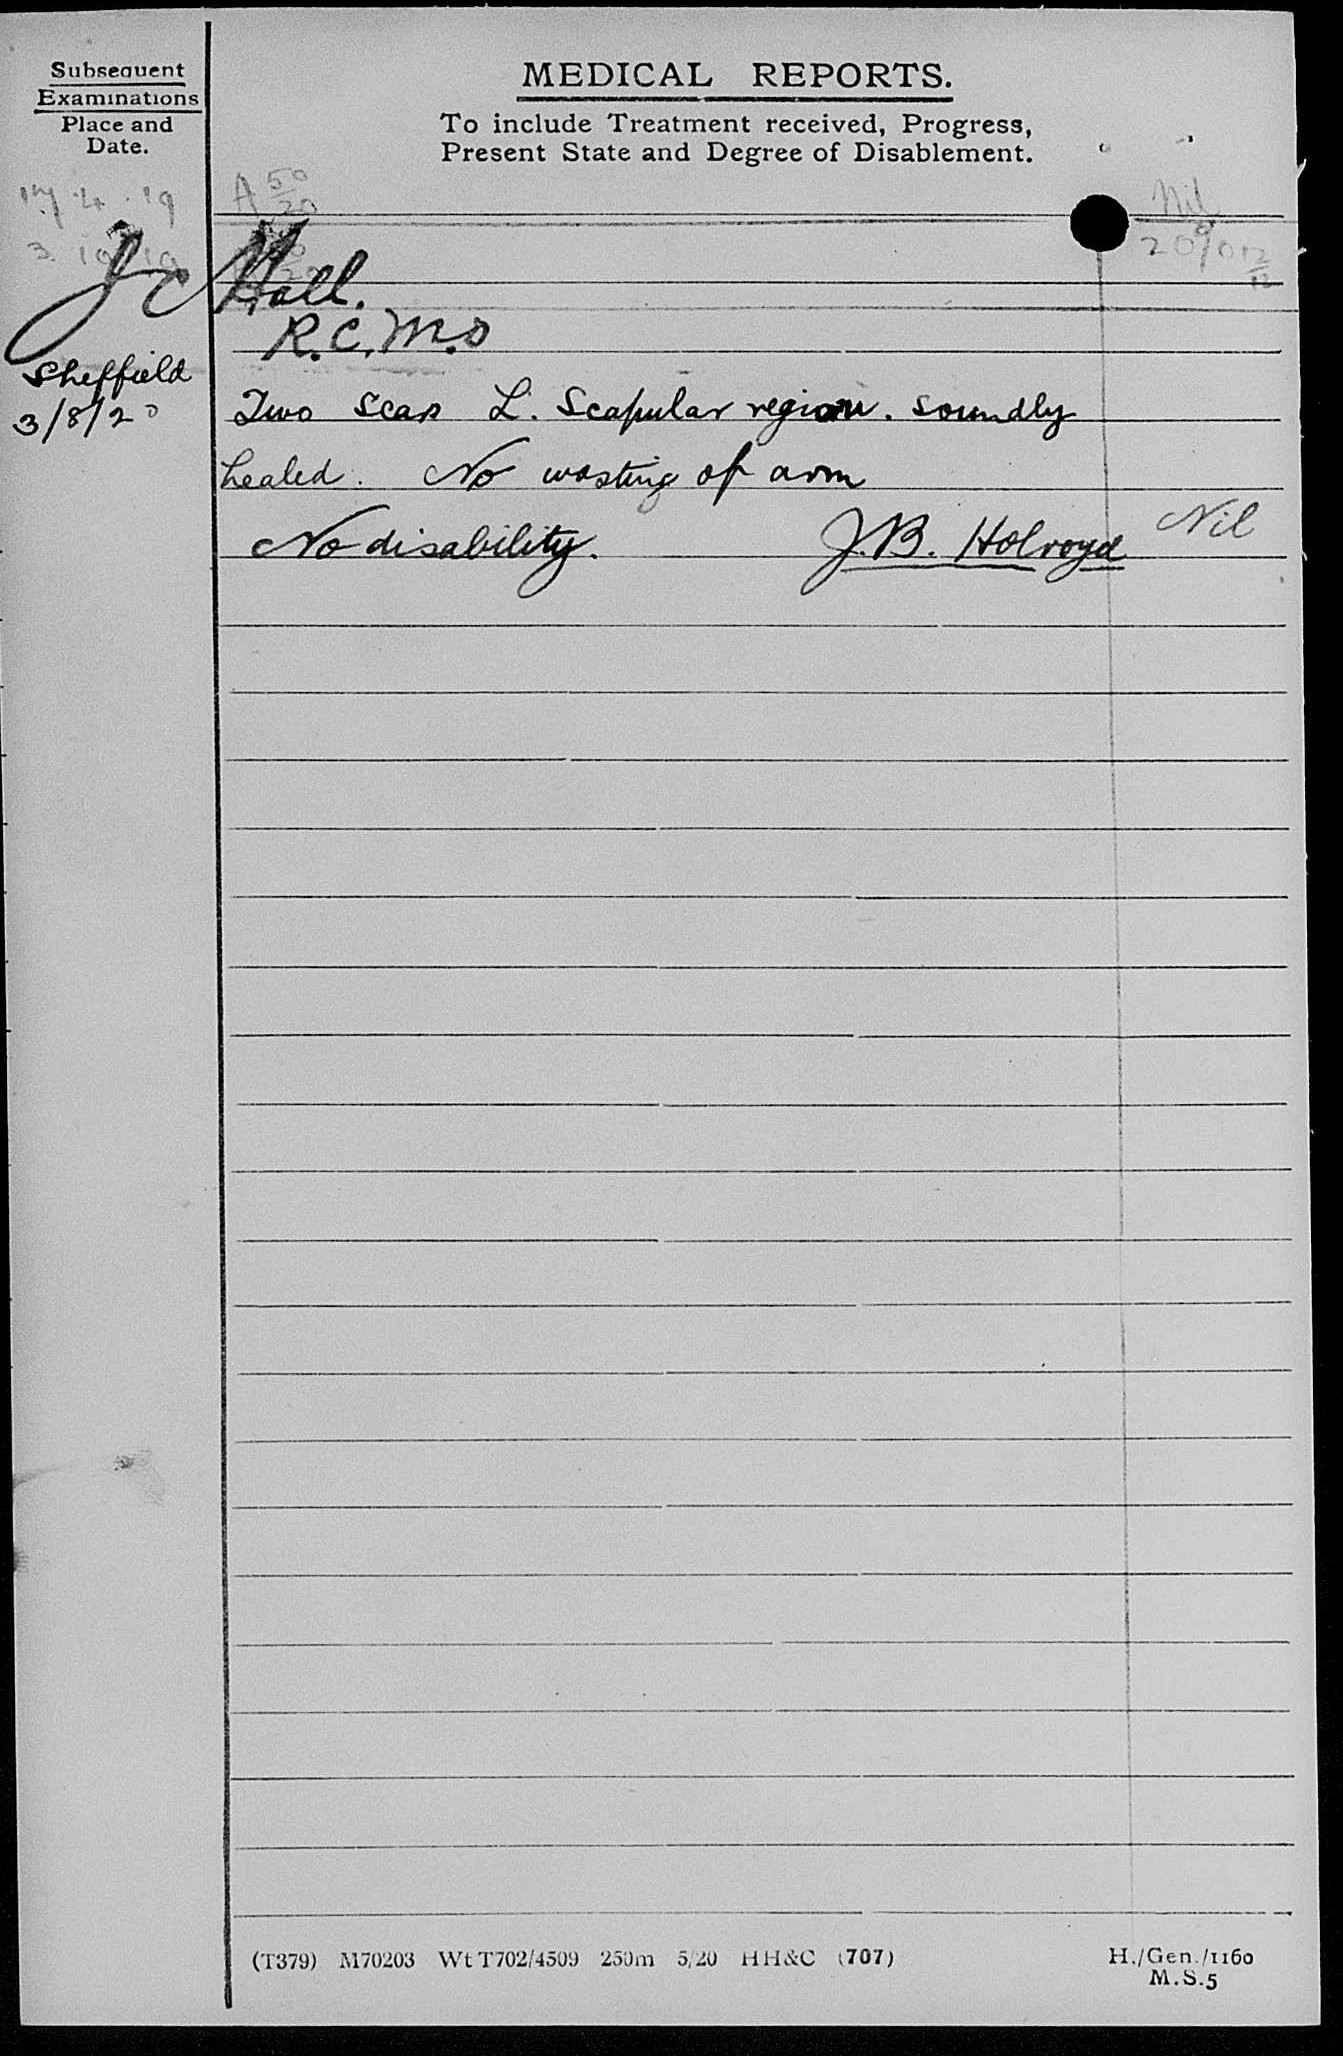 Subsequent
Examinations
Place and
Date.
MEDICAL REPORTS.
To include Treatment received, Progress,
Present State and Degree of Disablement.
17.4.19 A 50/20 Nil
3.10.19 20% 12/12
J C Hall.
R.C.M.O
Sheffield
3/8/20 Two scars L. Scapular region. soundly
healed. No wasting of arm
No disability. J.B. Holroyd Nil
(T379) M70203 Wt T702/4509 250m 5/20 HH&C (707) H./Gen./1160
M.S.5